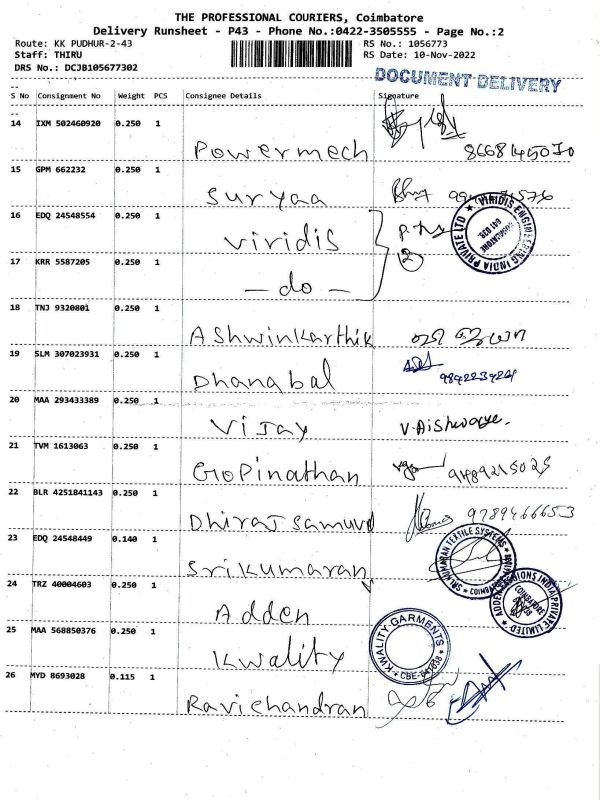 THE PROFESSIONAL COURIERS, Coimbatore
Delivery Runsheet - P43 - Phone No.:0422-3505555 - Page No.:2
Route: KK PUDHUR-2-43 RS No.: 1056773
Staff: THIRU RS Date: 10-Nov-2022
DRS No.: DCJB105677302
DOCUMENT DELIVERY
S No Consignment No Weight PCS Consignee Details Signature
14 IXM 502460920 0.250 1
Powermech 8668145070
15 GPM 662232 0.250 1
Suryaa
16 EDQ 24548554 0.250 1
Viridis
VIRIDIS ENGINEERING INDIA PRIVATE LTD
COIMBATORE
641 038
17 KRR 5587205 0.250 1
2
- do -
18 TNJ 9320801 0.250 1
Ashwinkarthik
19 SLM 307023931 0.250 1
Dhanabal
20 MAA 293433389 0.250 1
Vijay V.Aishwarya.
21 TVM 1613063 0.250 1
Gopinathan 9489215025
22 BLR 4251841143 0.250 1
Dhiraj Samuvel 9789466653
23 EDQ 24548449 0.140 1
Srikumaran
SRI KUMARAN TEXTILE SYSTEMS
24 TRZ 40004603 0.250 1
Adden
INDIA PRIVATE LIMITED
COIMBATORE
25 MAA 568850376 0.250 1
Kwality
KWALITY GARMENTS
26 MYD 8693028 0.115 1
Ravichandran